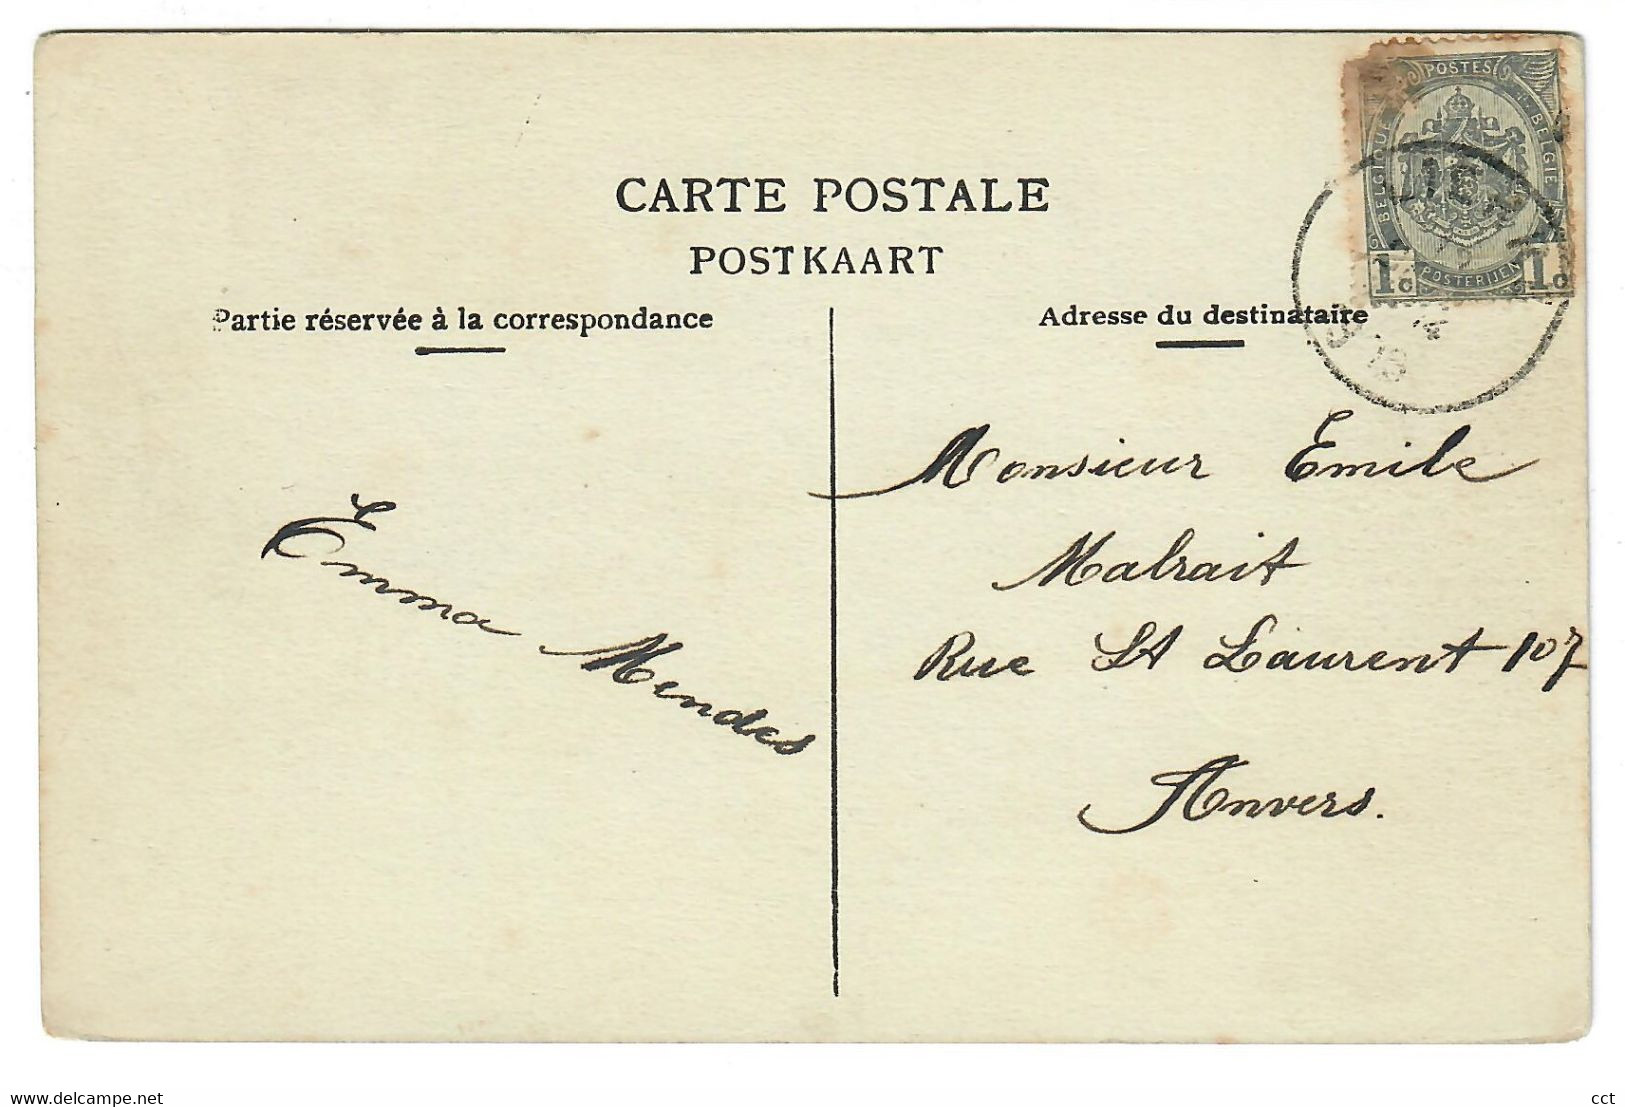 CARTE POSTALE
POSTKAART
Partie réservée à la correspondance
Adresse du destinataire
POSTES
BELGIQUE
BELGIË
1c
POSTERIJEN
1c
Monsieur Emile
Malrait
Rue St Laurent 107
Anvers.
Emma Mendes
www.delcampe.net
cct